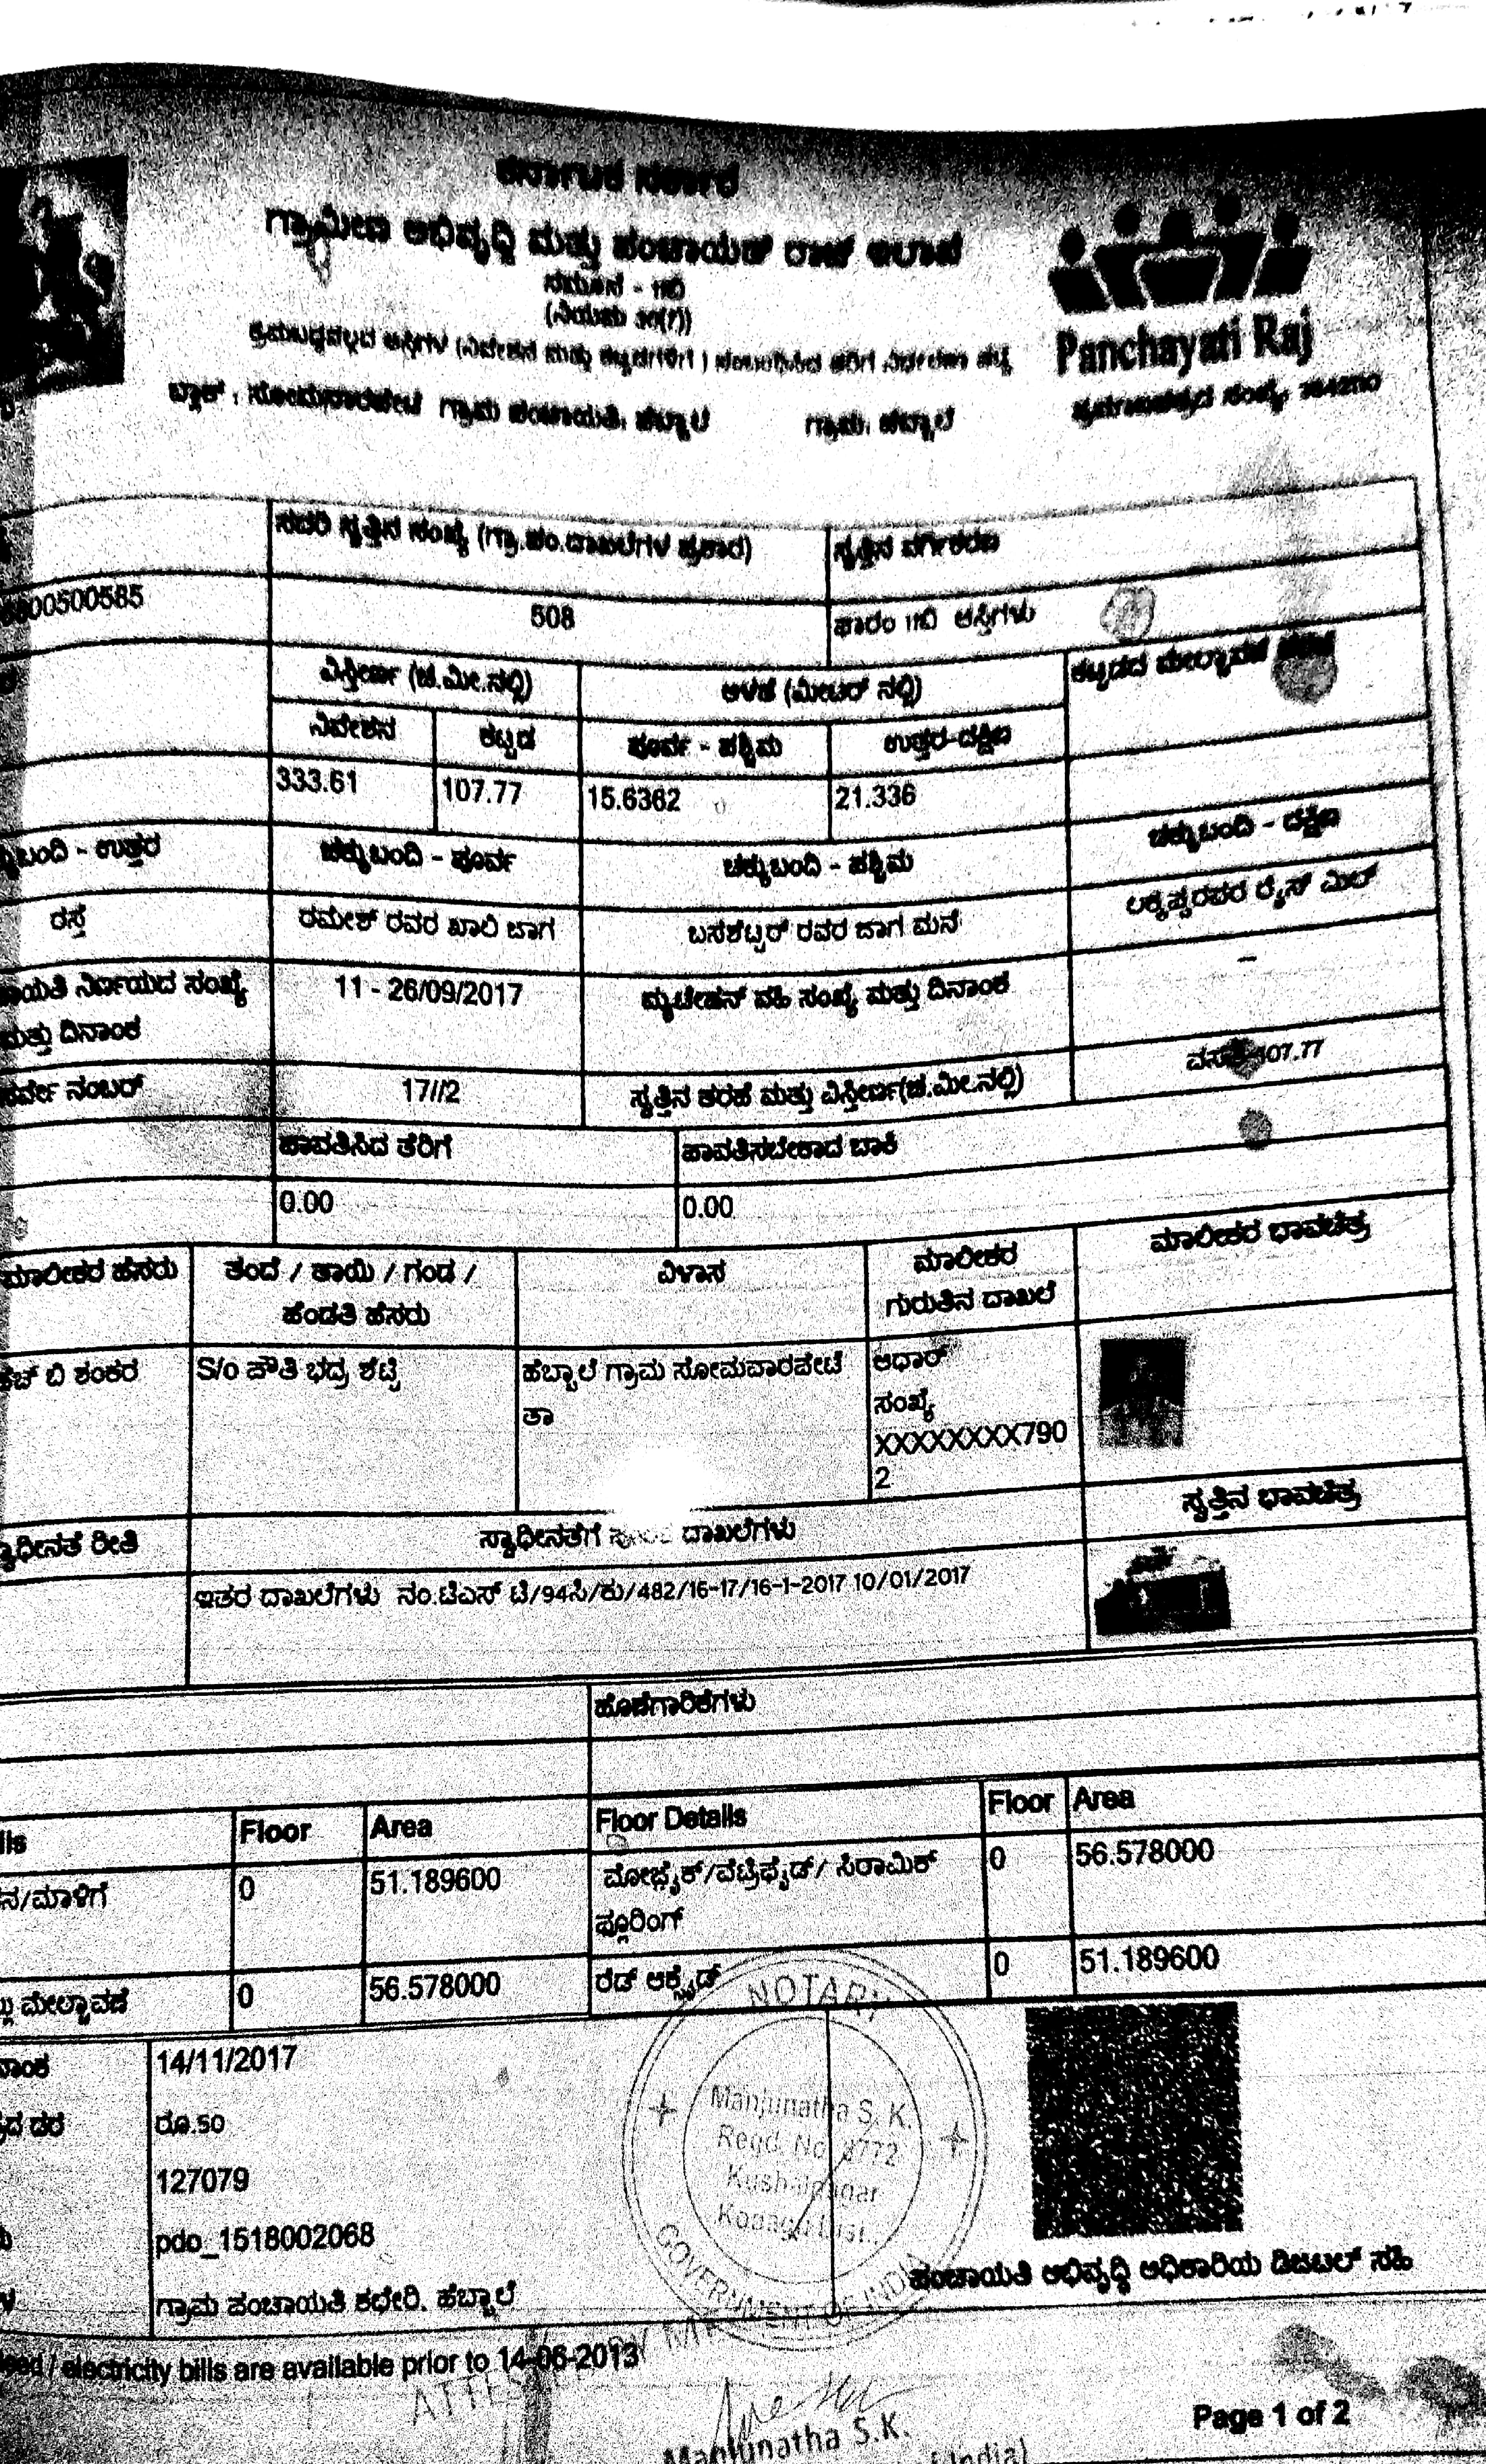 ಕರ್ನಾಟಕ ಸರ್ಕಾರ
ಗ್ರಾಮೀಣ ಅಭಿವೃದ್ಧಿ ಮತ್ತು ಪಂಚಾಯತ್ ರಾಜ್ ಇಲಾಖೆ
ನಮೂನೆ - 11ಬಿ
(ನಿಯಮ 30(1))
Panchayati Raj
ಬ್ಲಾಕ್ : ಸೋಮವಾರಪೇಟೆ ಗ್ರಾಮ ಪಂಚಾಯತಿ: ಹೆಬ್ಬಾಲೆ ಗ್ರಾಮ: ಹೆಬ್ಬಾಲೆ
ಸದರಿ ಸ್ವತ್ತಿನ ಸಂಖ್ಯೆ (ಗ್ರಾ.ಪಂ.ದಾಖಲೆಗಳ ಪ್ರಕಾರ) ಸ್ವತ್ತಿನ ವರ್ಗೀಕರಣ
00500585 508 ಫಾರಂ 11ಬಿ ಆಸ್ತಿಗಳು
ವಿಸ್ತೀರ್ಣ (ಚ.ಮೀ.ನಲ್ಲಿ) ಅಳತೆ (ಮೀಟರ್ ನಲ್ಲಿ) ಕಟ್ಟಡದ ಮೇಲ್ಛಾವಣಿ
ನಿವೇಶನ ಕಟ್ಟಡ ಪೂರ್ವ - ಪಶ್ಚಿಮ ಉತ್ತರ-ದಕ್ಷಿಣ
333.61 107.77 15.6362 21.336
ಬಂದಿ - ಉತ್ತರ ಚಕ್ಕುಬಂದಿ - ಪೂರ್ವ ಚಕ್ಕುಬಂದಿ - ಪಶ್ಚಿಮ ಚಕ್ಕುಬಂದಿ - ದಕ್ಷಿಣ
ರಸ್ತೆ ರಮೇಶ್ ರವರ ಖಾಲಿ ಜಾಗ ಬಸಶೆಟ್ಟರ್ ರವರ ಜಾಗ ಮನೆ ರೈಸ್ ಮಿಲ್
ಾಯತಿ ನಿರ್ಣಯದ ಸಂಖ್ಯೆ 11 - 26/09/2017 ಮ್ಯುಟೇಶನ್ ವಹಿ ಸಂಖ್ಯೆ ಮತ್ತು ದಿನಾಂಕ -
ಮತ್ತು ದಿನಾಂಕ
ಸರ್ವೇ ನಂಬರ್ 17//2 ಸ್ವತ್ತಿನ ತರಹೆ ಮತ್ತು ವಿಸ್ತೀರ್ಣ(ಚ.ಮೀ.ನಲ್ಲಿ) 107.77
ಪಾವತಿಸಿದ ತೆರಿಗೆ ಪಾವತಿಸಬೇಕಾದ ಬಾಕಿ
0.00 0.00
ಮಾಲೀಕರ ಹೆಸರು ತಂದೆ / ತಾಯಿ / ಗಂಡ / ವಿಳಾಸ ಮಾಲೀಕರ ಮಾಲೀಕರ ಭಾವಚಿತ್ರ
ಹೆಂಡತಿ ಹೆಸರು ಗುರುತಿನ ದಾಖಲೆ
ಹೆಚ್ ಬಿ ಶಂಕರ S/o ಪೌತಿ ಭದ್ರ ಶೆಟ್ಟಿ ಹೆಬ್ಬಾಲೆ ಗ್ರಾಮ ಸೋಮವಾರಪೇಟೆ ಆಧಾರ್
ತಾ ಸಂಖ್ಯೆ
XXXXXXXX790
2
ಸ್ವಾಧೀನತೆ ರೀತಿ ಸ್ವಾಧೀನತೆಗೆ ದಾಖಲೆಗಳು ಸ್ವತ್ತಿನ ಭಾವಚಿತ್ರ
ಇತರ ದಾಖಲೆಗಳು ನಂ.ಟಿಎಸ್ ಟಿ/94ಸಿ/ಕು/482/16-17/16-1-2017 10/01/2017
ಹೊಣೆಗಾರಿಕೆಗಳು
ils Floor Area Floor Details Floor Area
ನ/ಮಾಳಿಗೆ 0 51.189600 ಮೋಜೈಕ್/ವೆಟ್ರಿಫೈಡ್/ ಸಿರಾಮಿಕ್ 0 56.578000
ಫ್ಲೂರಿಂಗ್
ಮೇಲ್ಛಾವಣಿ 0 56.578000 ರೆಡ್ ಆಕ್ಸೈಡ್ 0 51.189600
14/11/2017
ರೂ.50
127079
pdo_1518002068
ಗ್ರಾಮ ಪಂಚಾಯತಿ ಕಛೇರಿ. ಹೆಬ್ಬಾಲೆ
NOTARY
Manjunatha S. K.
Regd. No.
Kushalnagar
Kodagu Dist.
GOVERNMENT OF INDIA
ಪಂಚಾಯತಿ ಅಭಿವೃದ್ಧಿ ಅಧಿಕಾರಿಯ ಡಿಜಿಟಲ್ ಸಹಿ
/ electricity bills are available prior to 14-06-2013
Page 1 of 2
Manjunatha S.K.